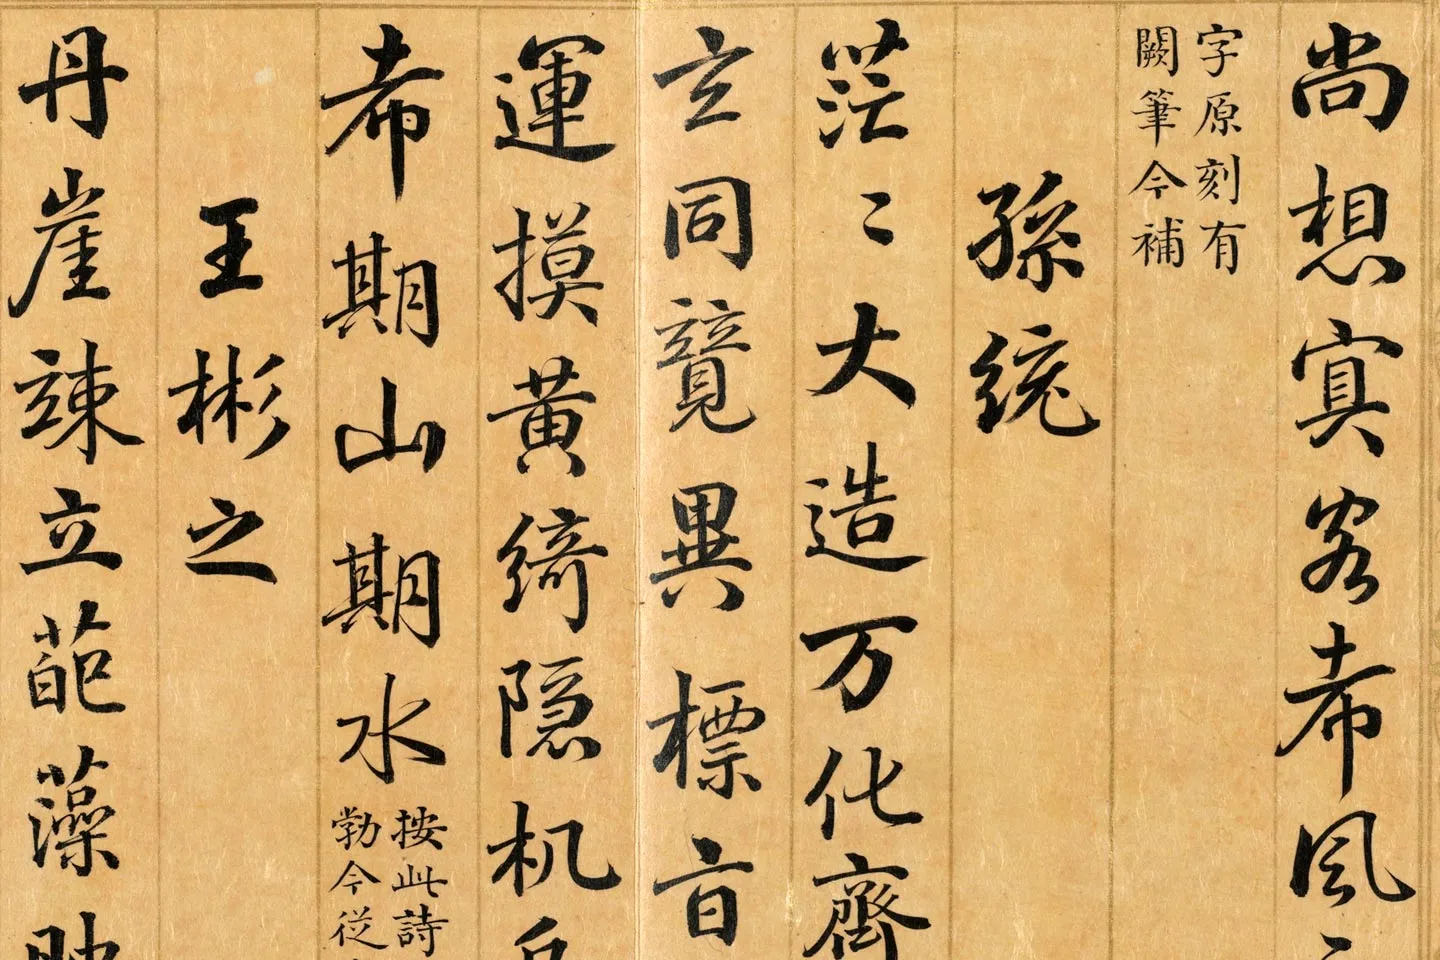 尚想冥客希風
字原刻有
闕筆今補
孫統
茫〻大造万化齊
玄同競異標旨
運摸黃綺隐机
希期山期水
按此詩
勒今從
王彬之
丹崖竦立葩藻映